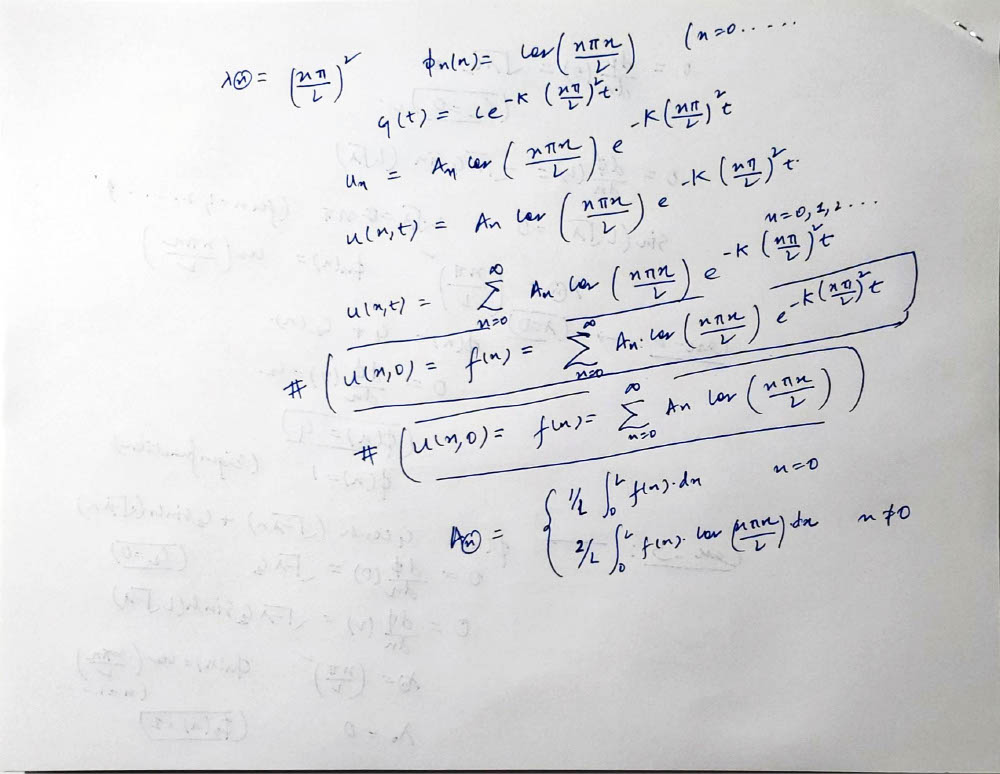 λn = (nπ/L)²   ϕn(x) = cos(nπx/L)   (n=0.....
G(t) = ce^-K(nπ/L)²t.
un = An cos(nπx/L) e^-K(nπ/L)²t
u(x,t) = An cos(nπx/L) e^-K(nπ/L)²t.
n=0,1,2...
u(x,t) = ∑_{n=0}^{∞} An cos(nπx/L) e^-K(nπ/L)²t
# (u(x,0) = f(x) = ∑_{n=0}^{∞} An. cos(nπx/L) e^-K(nπ/L)²t
# (u(x,0) = f(x) = ∑_{n=0}^{∞} An cos(nπx/L))
An = { 1/L ∫_0^L f(x).dx   n=0
2/L ∫_0^L f(x). cos(nπx/L).dx   n≠0